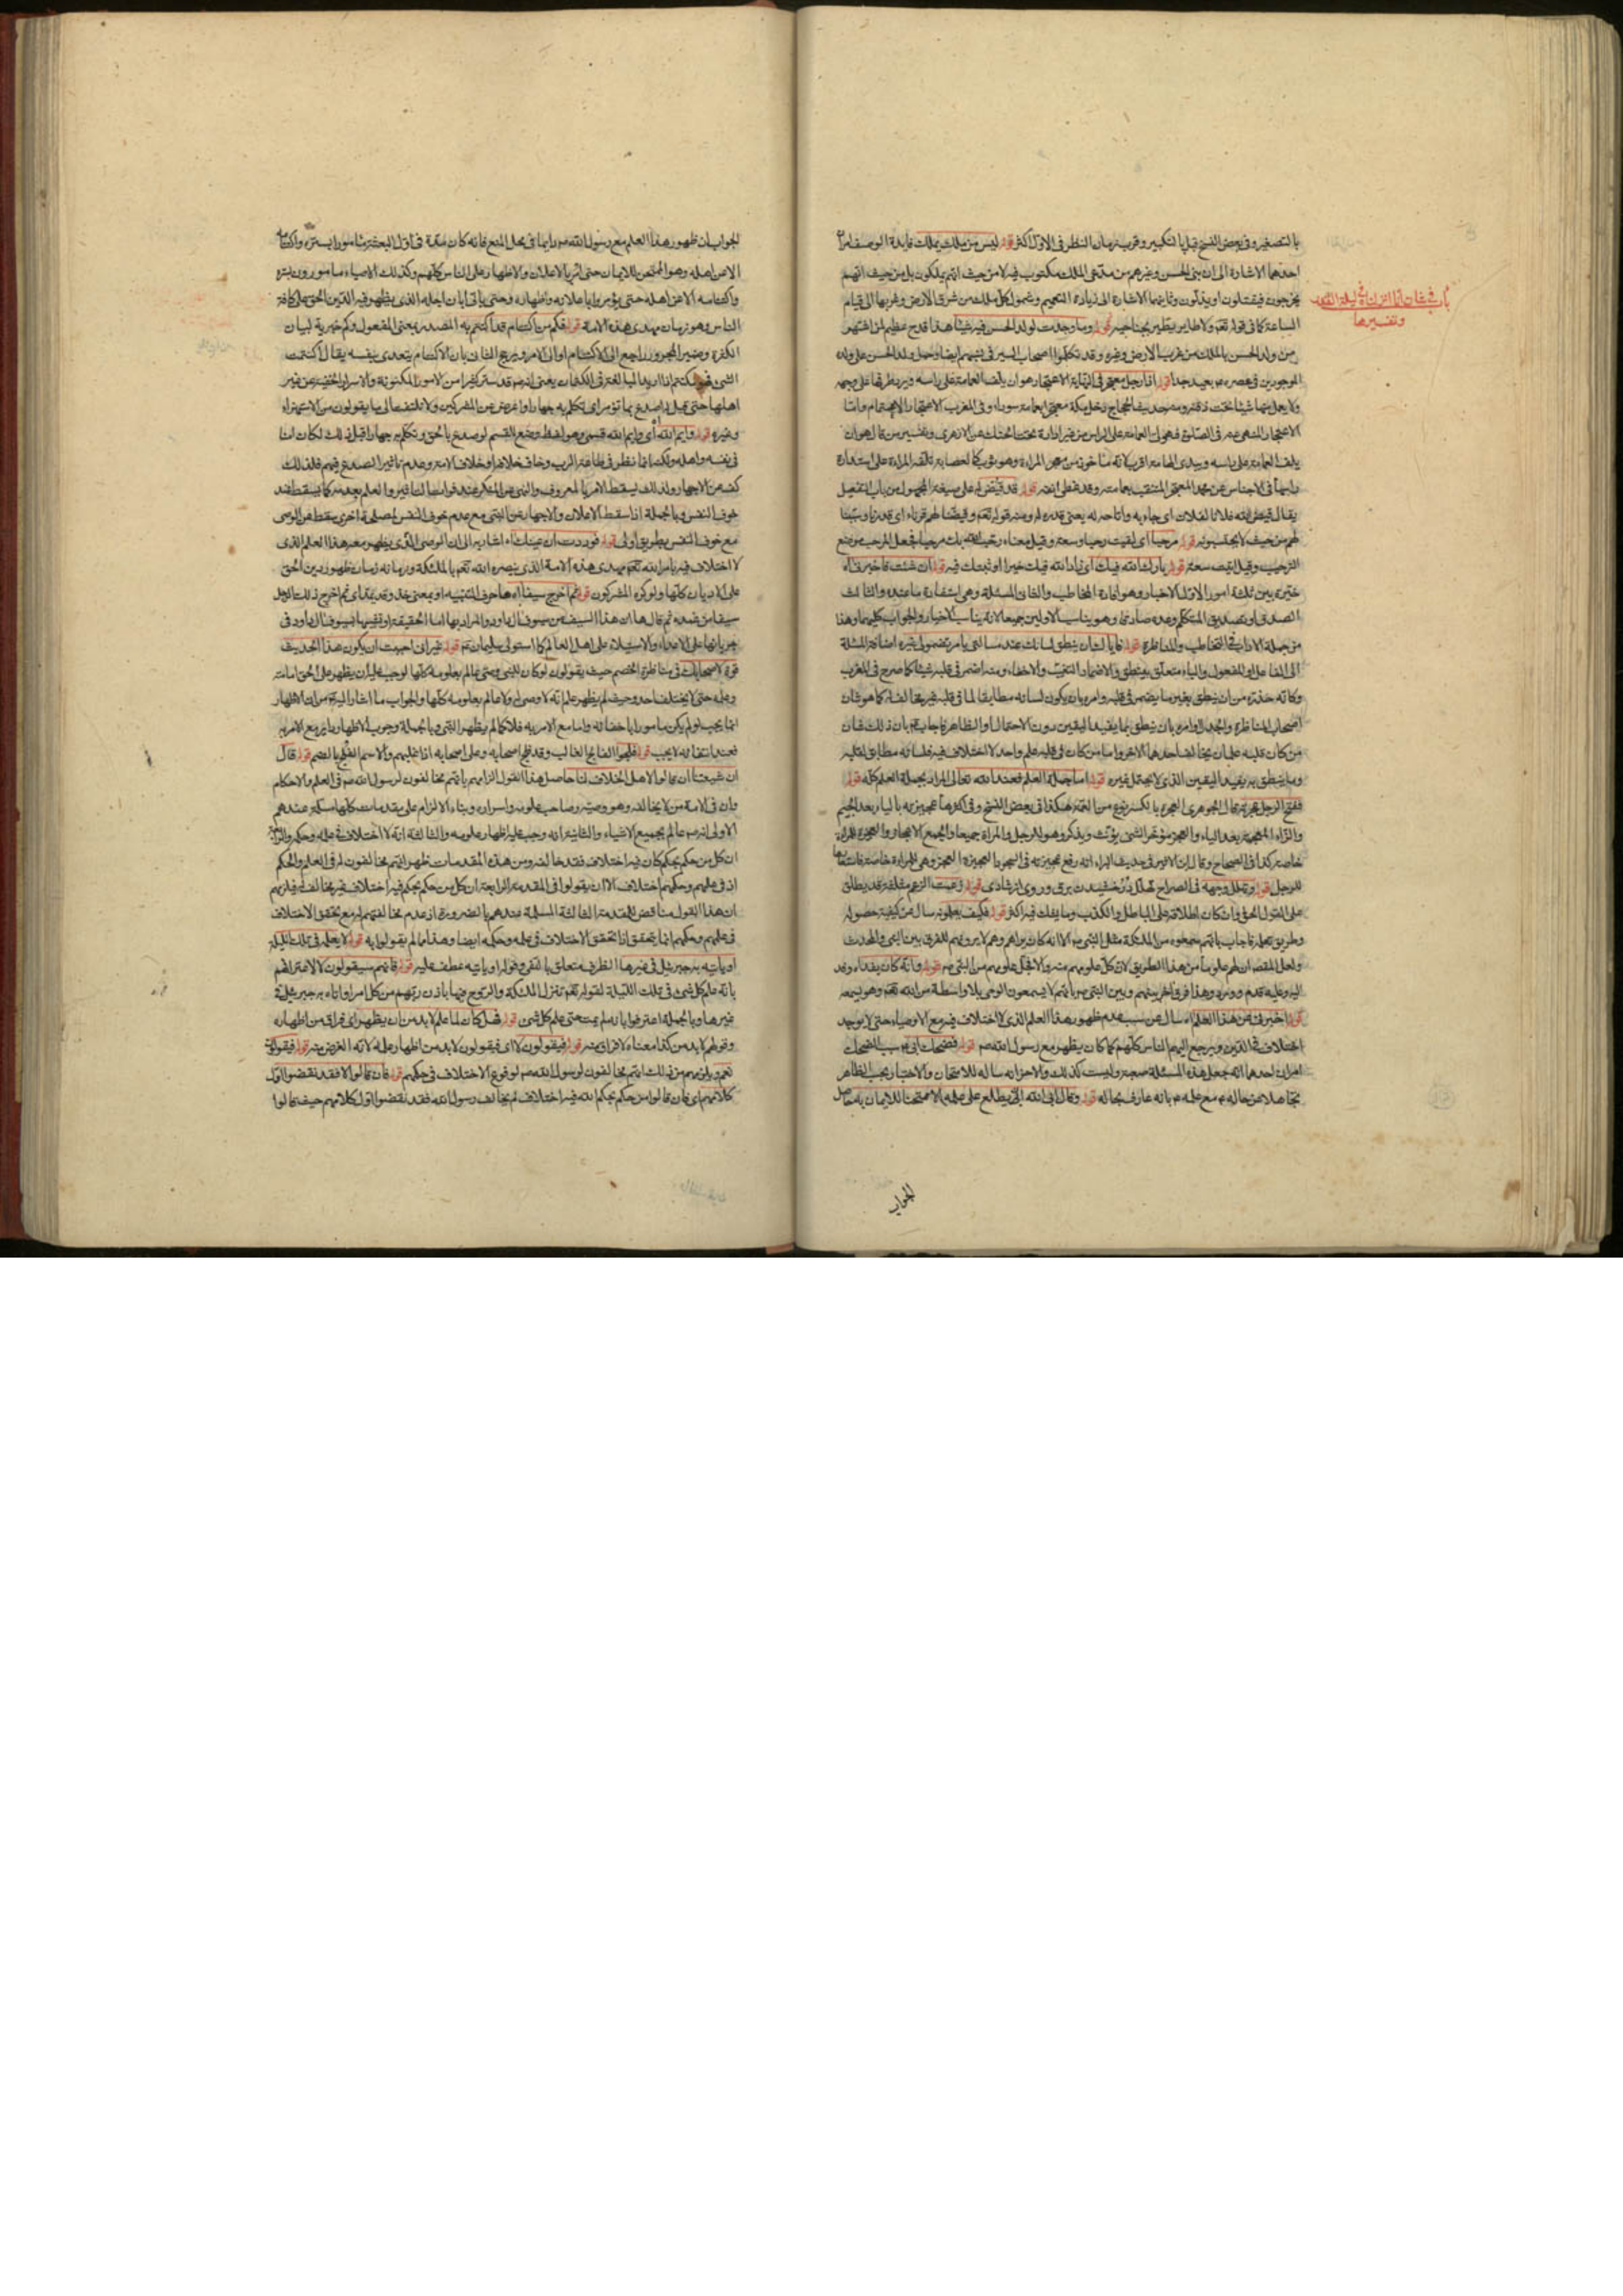 بالتصغير وفى بعض النسخ قبل بالتكبير وقريب زمان النظر فى الاول اكثر قوله ليس من ملك يملك فايدة الوصف امران
احدهما الاشارة الى ان بنى الحسن وغيرهم من مدعى الملك مكتوب فيه لا من حيث انهم يملكون بل من حيث انهم
يخرجون فيقتلون او يذلون وثانيهما الاشارة الى زيادة التعميم وشمول كل ملك من شرق الارض وغربها الى قيام
الساعة كما فى قوله تعم ولا طاير يطير بجناحيه قوله وما وجدت لولد الحسن فيه شيئا هذا قدح عظيم لمن اشتهر
من ولد الحسن بالملك من غرب الارض وغيره وقد تكلموا اصحاب السير فى نسبهم ايضا وحمل ولد الحسن على ولده
الموجودين فى عصره ع بعيد جدا قوله اذا رجل معتجر فى النهاية الاعتجار هو ان يلف العمامة على راسه ويرد طرفها على وجهه
ولا يعمل منها شيئا تحت ذقنه ومنه حديث الحجاج دخل مكة معتجرا بعمامة سوداء وفى المغرب الاعتجار الاعتمام واما
الاعتجار المنهى عنه فى الصلوة فهو لى العمامة على الراس من غير ادارة تحت الحنك عن الازهرى وتفسير من قال هو ان
يلف العمامة على راسه ويبدى الهامة اقرب لانه ماخوذ من معجر المراءة وهو ثوب كالعصابة تلفه المراءة على استدارة
راسها فى الاجناس عن محمد المعتجر المتنقب بعمامته وقد غطى انفه قوله قد قيض له على صيغة المجهول من باب التفعيل
يقال قيض الله فلانا لفلان اى جاء به واتاحه له يعنى قدره له ومنه قوله تعم وقيضنا لهم قرناء اى قدرنا وسببنا
لهم من حيث لا يحتسبونه قوله مرحبا اى لقيت رحبا وسعة وقيل معناه رحب الله بك مرحبا فجعل المرحب موضع
الترحيب وقيل اتيت سعة قوله بارك الله فيك اى زاد الله فيك خيرا او ثبتك فيه قوله ان شئت فاخبرنى اه
خيره بين ثلثة امور الاول الاخبار وهو افادة المخاطب والثانى المسئلة وهى استفادة ما عنده والثالث
الصدق او تصديق المتكلم وعده صادقا وهو يناسب الاولين جميعا لانه يناسب الاخبار والجواب كليهما وهذا
من جملة الاداب فى التخاطب والمناظرة قوله فاياك ان ينطق لسانك عند مسالتى بامر تضمر لى غيره اضافة المسئلة
الى الفاعل او المفعول والباء متعلق بينطق والاضمار التغيب والاخفاء ومنه اضمر فى قلبه شيئا كما صرح فى المغرب
وكانه حذره من ان ينطق بغير ما يضمر فى قلبه وامره بان يكون لسانه مطابقا لما فى قلبه غير مخالف له كما هو شان
اصحاب المناظرة والجدل او امره بان ينطق بما يفيد اليقين دون الاحتمال والظاهر فاجاب ع بان ذلك شان
من كان قلبه علمان يخالف احدهما الاخر واما من كان فى قلبه علم واحد لا اختلاف فيه فلسانه مطابق لقلبه
وما ينطق به يفيد اليقين الذى لا يحتمل غيره قوله اما جملة العلم فعند الله تعالى المراد بجملة العلم كله قوله
ففتح الرجل عجرته قال الجوهرى العجرة بالكسر نوع من العمة هكذا فى بعض النسخ وفى اكثرها عجيزته بالياء بعد الجيم
والزاء المعجمة بعد الياء والعجز مؤخر الشئ يؤنث ويذكر وهو للرجل والمراة جميعا والجمع الاعجاز والعجيزة للمراة
خاصة كذا فى الصحاح وقال ابن الاثير فى حديث البراء انه رفع عجيزته فى السجود العجيزة العجز وهى للمراءة خاصة فاستعارها
للرجل قوله وتهلل وجهه فى الصراح تهلل درخشيدن برق وروى از شادى قوله زعمت الزعم مثلثة قد يطلق
على القول الحق وان كان اطلاقه على الباطل والكذب وما يشك فيه اكثر قوله فكيف يعلمونه سال عن كيفية حصوله
وطريق تعلمه فاجاب بانهم سمعوه من الملئكة مثل النبى ص الا انه كان يراهم وهم لا يرونهم للفرق بين النبى والمحدث
ولعل المقصد ان لهم علوما من هذا الطريق لان كل علومهم منه والا فجل علومهم من النبى ص قوله وانه كان يفد اه وفد
اليه وعليه قدم وورد وهذا فرق اخر بينهم وبين النبى ص بانهم لا يسمعون الوحى بلا واسطة من الله تعم وهو يسمعه
قوله اخبرنى عن هذا العلم اه سال عن سبب عدم ظهور هذا العلم الذى لا اختلاف فيه مع الاوصياء حتى لا يوجد
اختلاف فى الدين ويرجع اليهم الناس كلهم كما كان يظهر مع رسول الله ص قوله فضحك ابى ع سبب الضحك
امران احدهما انه جعل هذه المسئلة صعبة وليست كذلك والاخر انه ساله للامتحان والاختبار بحسب الظاهر
تجاهلا عن حاله ع مع علمه ع بانه عارف بحاله قوله وقال ابى الله ان يطلع على علمه الا ممتحنا للايمان به حاصل
باب فى شان انا انزلناه فى ليلة القدر
وتفسيرها
الجواب
الجواب ان ظهور هذا العلم مع رسول الله ص دايما فى محل المنع فانه كان مدة فى اول البعثة مامورا بستره واكتتامه
الا عن اهله وهو الممتحن للايمان حتى امر بالاعلان والاظهار على الناس كلهم وكذلك الاوصياء مامورون بستره
واكتتامه الا عن اهله حتى يؤمروا باعلانه واظهاره وحتى ياتى ابان اجله الذى يظهر فيه الدين الحق على كافة
الناس وهو زمان مهدى هذه الامة قوله فكم من اكتتام قد اكتتم به المصدر بمعنى المفعول وكم خبرية لبيان
الكثرة وضمير المجرور راجع الى الاكتتام او الى الامر ويرجح الثانى بان الاكتتام يتعدى بنفسه يقال اكتتمت
الشئ فهو مكتتم اذا اريد المبالغة فى الكتمان يعنى انه ص قد ستر كثيرا من الامور المكنونة والاسرار الخفية عن غير
اهلها حتى قيل له اصدع بما تؤمر اى تكلم به جهارا واعرض عن المشركين ولا تلتفت الى ما يقولون من الاستهزاء
وغيره قوله وايم الله اى وايم الله قسمى وهو لفظ وضع للقسم لو صدع بالحق وتكلم به جهارا قبل ذلك لكان امنا
فى نفسه واهله ولكنه انما نظر فى طاعة الرب وخاف خلافه او خلاف الامة وعدم تاثير الصدع فيهم فلذلك
كف عن الاجهار ولذلك يسقط الامر بالمعروف والنهى عن المنكر عند فوات التاثير والعلم بعدمه كما يسقط عند
خوف النفس وبالجملة اذا سقط الاعلان والاجهار عن النبى مع عدم خوف النفس لمصلحة اخرى سقط عن الوصى
مع خوف النفس بطريق اولى قوله فوددت ان عينك اه اشار به الى ان الوصى الذى يظهر معه هذا العلم الذى
لا اختلاف فيه بامر الله تعم مهدى هذه الامة الذى ينصره الله تعم بالملئكة وزمانه زمان ظهور دين الحق
على الاديان كلها ولو كره المشركون قوله ثم اخرج سيفا اه ها حرف التنبيه او بمعنى خذ وقد يمد اى ثم اخرج ذلك الرجل
سيفا من غمده ثم قال ها ان هذا السيف من سيوف ال داود والمراد بها اما الحقيقة او تشبيهها بسيوف ال داود فى
جريانها على الاعداء والاستيلاء على اهل العالم كما استولى سليمان ع قوله غير انى احببت ان يكون هذا الحديث
قوة لاصحابك فى مناظرة الخصم حيث يقولون لو كان للنبى وصى عالم بعلومه كلها لوجب عليه ان يظهر على الحق امامته
وعلمه حتى لا يختلف احد وحيث لم يظهر علم انه لا وصى له ولا عالم بعلومه كلها والجواب ما اشار اليه ع من ان الاظهار
انما يجب لو لم يكن مامورا باخفائه واما مع الامر به فلا كما لم يظهر النبى وبالجملة وجوب الاظهار داير مع الامر به
فعند انتفائه لا يجب قوله فلجوا الفالج الغالب وقد فلج اصحابه وعلى اصحابه اذا غلبهم والاسم الفلج بالضم قوله قال
ان شيعتنا ان قالوا لاهل الخلاف لنا حاصل هذا القول الزامهم بانهم مخالفون لرسول الله ص فى العلم والاحكام
وان فى الامة من لا يخالفه وهو وصيه وصاحب علومه واسراره وبناء الالزام على مقدمات كلها مسلمة عندهم
الاولى انه ص عالم بجميع الاشياء والثانية انه وجب عليه اظهار علومه والثالثة انه لا اختلاف فى علمه وحكمه والرابعة
ان كل من حكم بحكم كان فيه اختلاف فقد خالفه ومن هذه المقدمات ظهر انهم مخالفون له فى العلم والحكم
اذ فى علمهم وحكمهم اختلاف الا ان يقولوا فى المقدمة الرابعة ان كل من حكم بحكم فيه اختلاف غير مخالف له فيلزمهم
ان هذا القول مناقض للمقدمة الثالثة المسلمة عندهم بالضرورة اذ عدم مخالفتهم له مع تحقق الاختلاف
فى علمهم وحكمهم انما يتحقق اذا تحقق الاختلاف فى علمه وحكمه ايضا وهذا ما لم يقولوا به قوله لا يعلمه فى تلك الليلة
او ياتيه به جبرئيل فى غيرها الظرف متعلق بالنفى وقوله او ياتيه عطف عليه قوله فانهم سيقولون لا لاعترافهم
بانه علم كل شئ فى تلك الليلة لقوله تعم تنزل الملئكة والروح فيها باذن ربهم من كل امر او اتاه به جبرئيل فى
غيرها وبالجملة اعترفوا بانه لم يمت حتى علم كل شئ قوله فهل كان لما علم لا بد من ان يظهر اى فراق من اظهاره
وقولهم لا بد من كذا معناه لا فراق منه قوله فيقولون لا اى فيقولون لا بد من اظهار علمه لانه الغرض منه قوله فيقولون
نعم ويلزمهم من ذلك انهم مخالفون لرسول الله ص لوقوع الاختلاف فى حكمهم قوله فان قالوا لا فقد نقضوا اول
كلامهم اى فان قالوا من حكم بحكم الله فيه اختلاف لم يخالف رسول الله فقد نقضوا اول كلامهم حيث قالوا